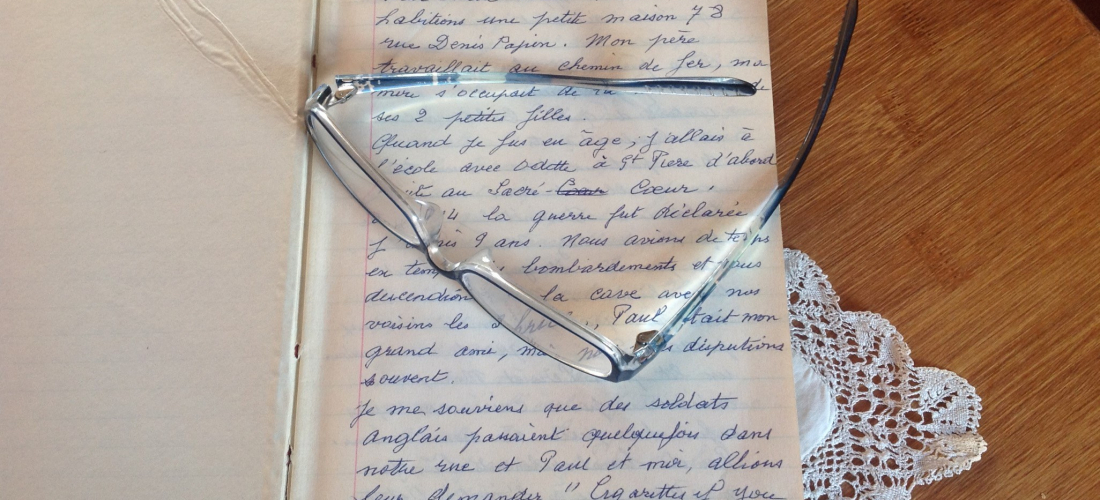 habitions une petite maison 78
rue Denis Papin. Mon père
travaillait au chemin de fer, ma
mère s'occupait de la de
ses 2 petites filles.
Quand je fus en âge, j'allais à
l'école avec Odette à St Piere d'abord
au Sacré-Coeur.
14 la guerre fut déclarée
9 ans. Nous avions de temps
en bombardements et nous
la cave avec nos
voisins les Paul était mon
grand ami, disputions
souvent.
Je me souviens que des soldats
anglais passaient quelquefois dans
notre rue et Paul et moi, allions
leur demander "Cigarettes if you